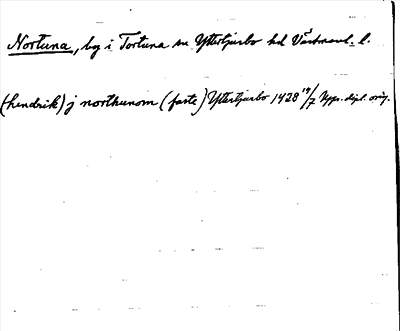 Nortuna, by i Tortuna sn Yttertjurbo hd Västmanl. l.
(hendrik) j northunom (faste) Yttertjurbo 1428 19/7 Upps. dipl. orig.